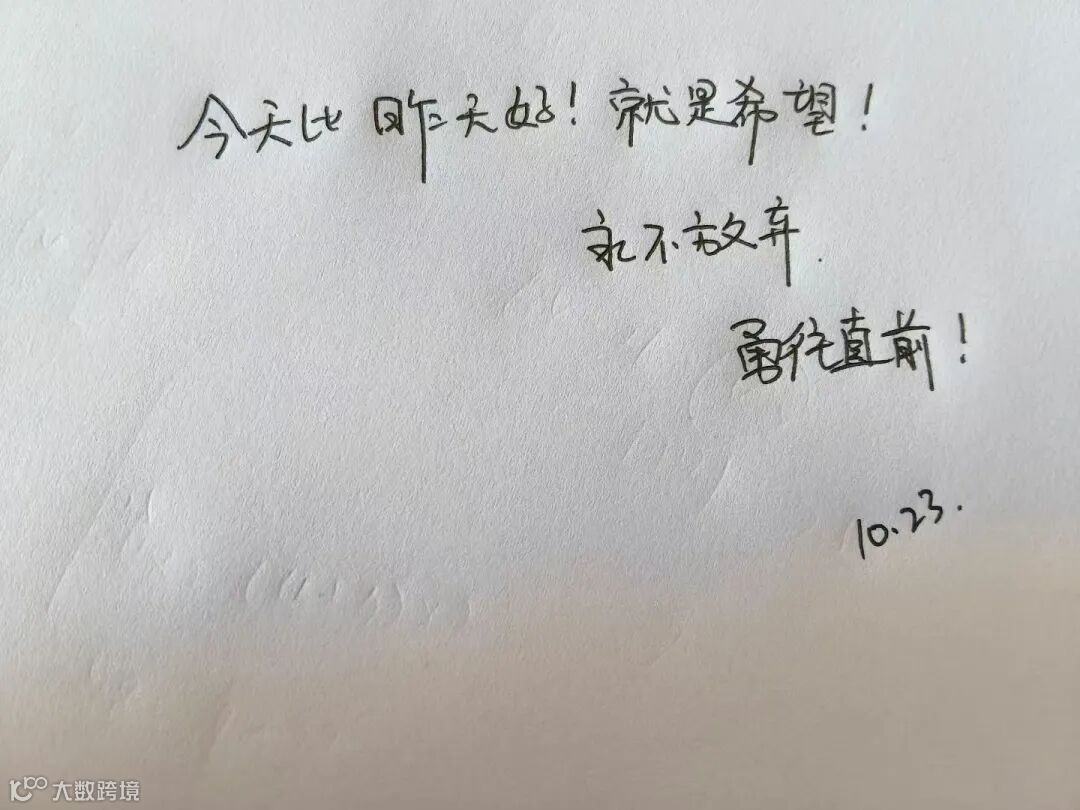 今天比昨天好！就是希望！
永不放弃.
勇往直前！
10.23.
大数跨境